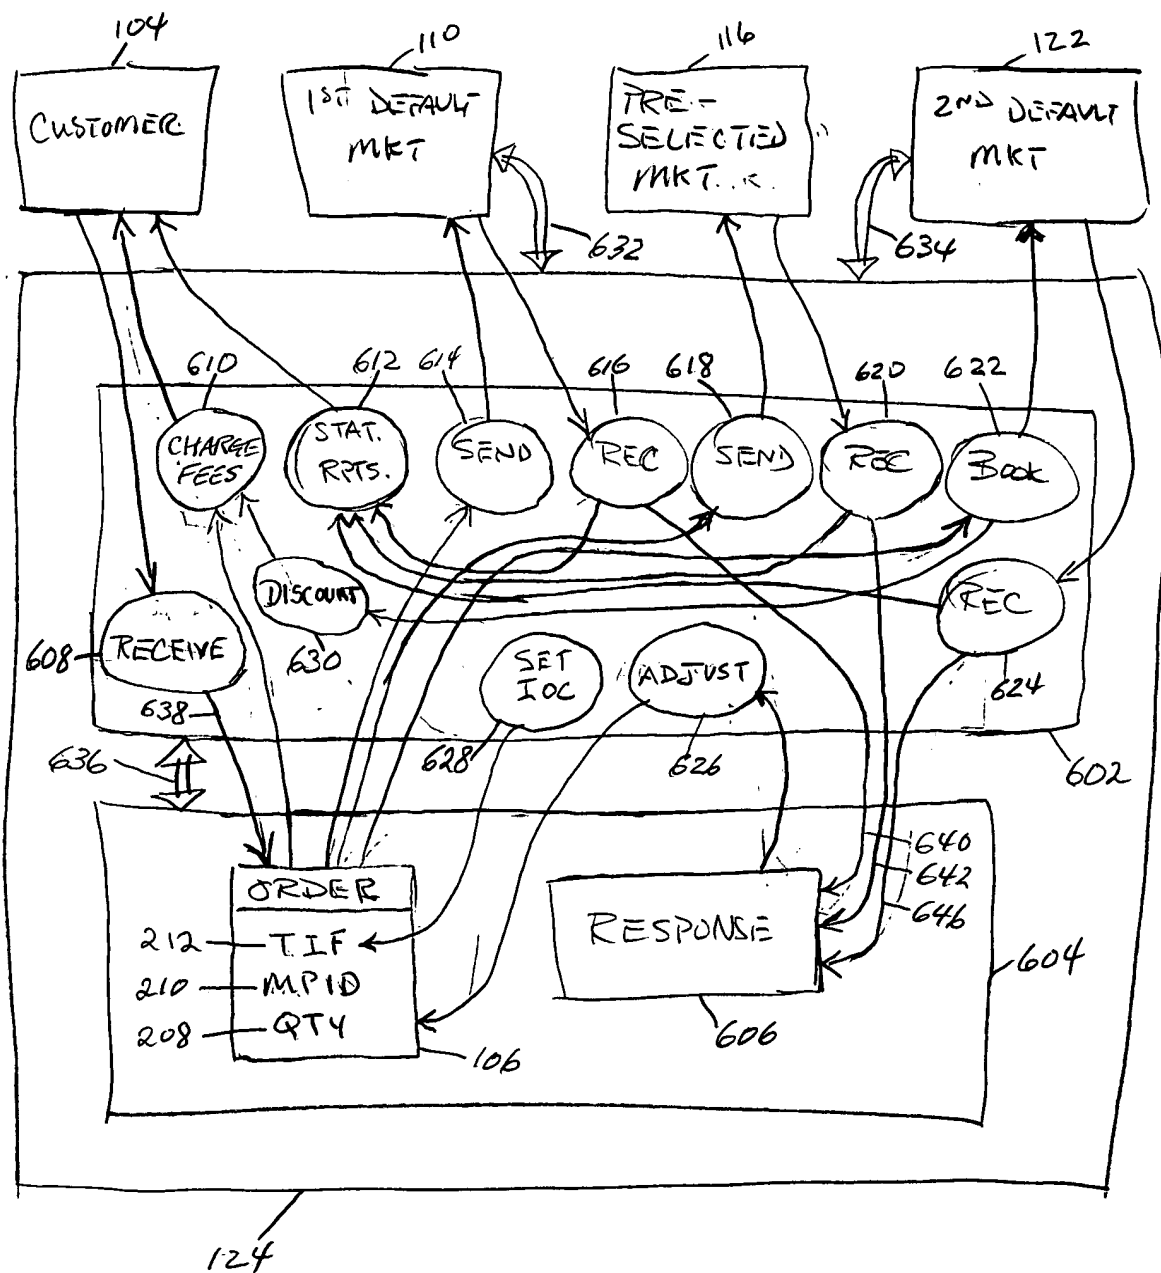 104
110
116
122
CUSTOMER
1ST DEFAULT
MKT
PRE-
SELECTED
MKT...
2ND DEFAULT
MKT
632
634
610
612
614
616
618
620
622
CHARGE
FEES
STAT.
RPTS.
SEND
REC
SEND
REC
BOOK
DISCOUNT
REC
608
RECEIVE
630
SET
IOC
ADJUST
624
638
628
626
636
602
640
642
646
ORDER
212
TIF
210
MPID
208
QTY
106
RESPONSE
606
604
124